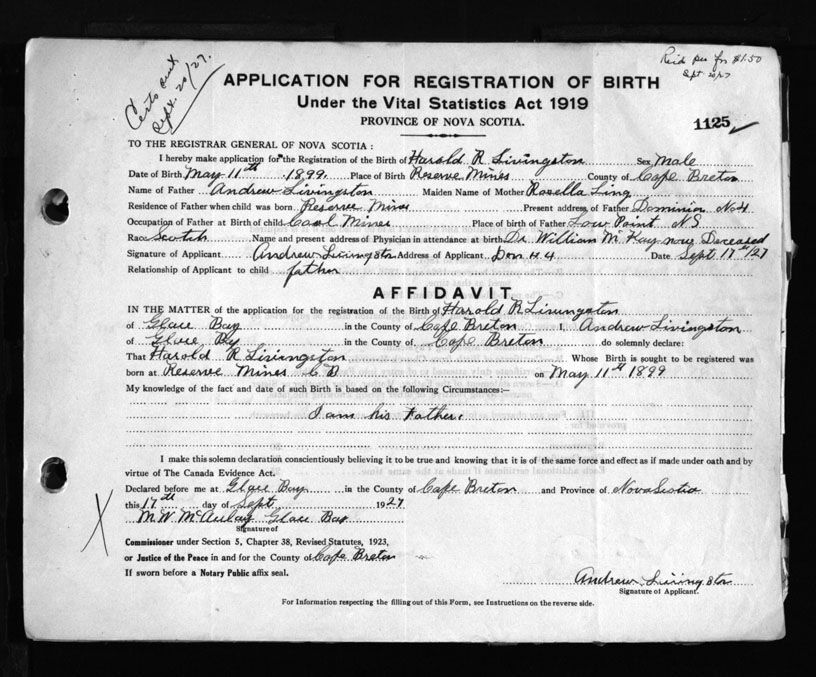 Certs sent
Sept. 20/27.
Sept 20/27
APPLICATION FOR REGISTRATION OF BIRTH
Under the Vital Statistics Act 1919
PROVINCE OF NOVA SCOTIA.
1125
TO THE REGISTRAR GENERAL OF NOVA SCOTIA :
I hereby make application for the Registration of the Birth of Harold R Livingston Sex Male
Date of Birth May 11th 1899. Place of Birth Reserve Mines County of Cape Breton
Name of Father Andrew Livingston Maiden Name of Mother Rosella Ling
Residence of Father when child was born Reserve Mines Present address of Father Dominion No 4
Occupation of Father at Birth of child Coal Miner Place of birth of Father Low Point N.S.
Race Scotch Name and present address of Physician in attendance at birth Dr William McKay now Deceased
Signature of Applicant Andrew Livingston Address of Applicant Dom # 4 Date Sept 17th/27
Relationship of Applicant to child father
AFFIDAVIT
IN THE MATTER of the application for the registration of the Birth of Harold R Livingston
of Glace Bay in the County of Cape Breton I, Andrew Livingston
of Glace Bay in the County of Cape Breton do solemnly declare:
That Harold R Livingston Whose Birth is sought to be registered was
born at Reserve Mines C B on May 11th 1899
My knowledge of the fact and date of such Birth is based on the following Circumstances:—
I am his Father.
I make this solemn declaration conscientiously believing it to be true and knowing that it is of the same force and effect as if made under oath and by
virtue of The Canada Evidence Act.
Declared before me at Glace Bay in the County of Cape Breton and Province of Nova Scotia
this 17th day of Sept 1927
M. W. McAulay Glace Bay
Signature of
Commissioner under Section 5, Chapter 38, Revised Statutes, 1923,
or Justice of the Peace in and for the County of Cape Breton
If sworn before a Notary Public affix seal.
Andrew Livingston
Signature of Applicant.
For Information respecting the filling out of this Form, see Instructions on the reverse side.